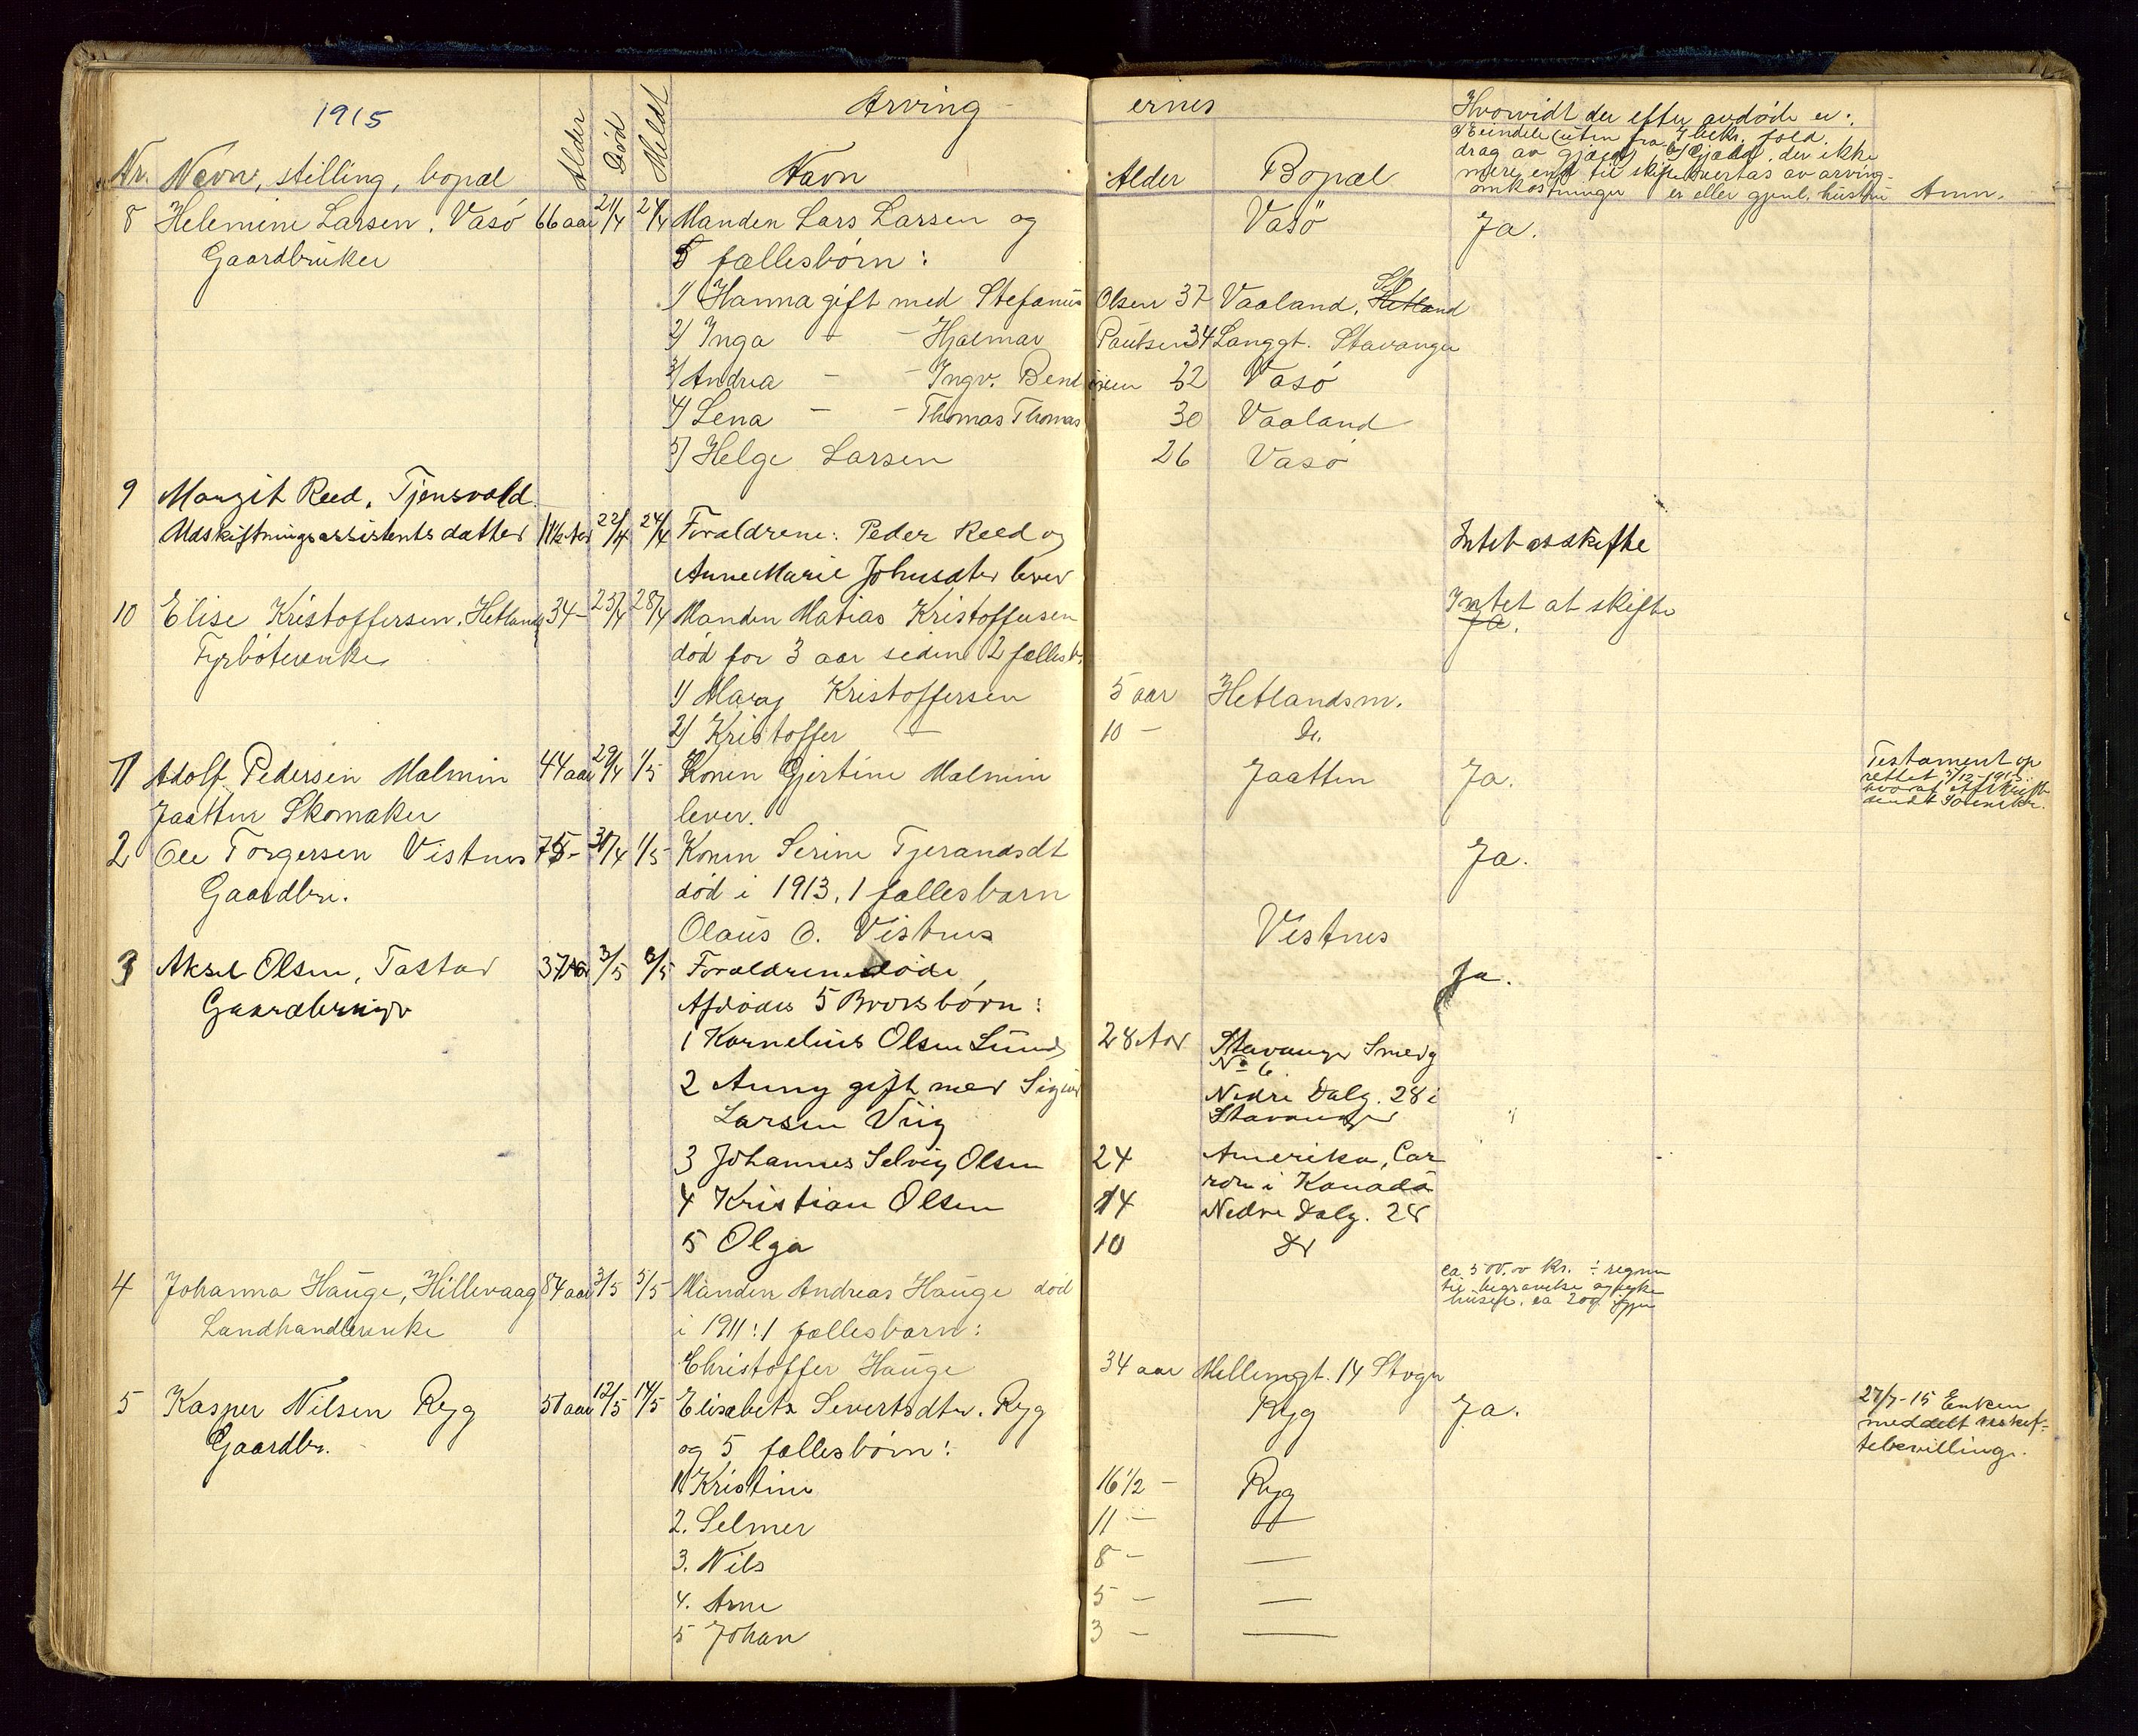 1915
Arvingernes
Hvorvidt der efter avdøde er:
Nr. Navn, stilling, bopæl Alder Død Meldt Navn Alder Bopæl Anm.
8 Helemine Larsen, Vasö 66 aar 21/4 24/4 Manden Lars Larsen og Vasö Ja.
Gaardbruker 5 fællesbörn:
1) Hanna gift med Stefanus Olsen 37 Vaaland, St. Hetland
2) Inga - - Hjalmar Paulsen 34 Langgt. Stavanger
3) Andrea - - Ingv. Bendixen 32 Vasö
4) Lena - - Thomas Thomas 30 Vaaland
5) Helge Larsen 26 Vasö
9 Margit Reed, Tjensvold
Udskiftningsassistents datter 11½ Aar 22/4 24/4 Forældrene: Peder Reed og Intet at skifte
Anne Marie Johnsdter lever
10 Elise Kristoffersen, Hetland 34 - 25/4 28/4 Manden Matias Kristoffersen Intet at skifte
Ja.
Fyrböterenke död for 3 aar siden 2 fællesb.
1) Mary Kristoffersen 5 aar Hetlandsm.
2) Kristoffer - 10 - Do.
11 Adolf Pedersen Malmin 44 aar 29/4 1/5 Konen Gjertine Malmin Jaatten Ja. Testament op
rettet
Jaatten Skomaker lever.
2 Ole Torgersen Vistnes 75 - 30/4 1/5 Konen Serine Tjerandsdt Ja.
Gaardbr. död i 1913, 1 fællesbarn
Olaus O. Vistnes Vistnes
3 Aksel Olsen, Tastad 37 Aar 3/5 6/5 Forældrene døde Ja.
Gaardbruger Afdödes 5 Brorsbörn:
1 Kornelius Olsen Lunde 28 Aar Stavanger Smedg
No 6
2 Anny gift med Sigurd Nedre Dalg. 28 i
Larsen Viig Stavanger "
3 Johannes Selvig Olsen 24 Amerika, Car
ron i Kanada
4 Kristian Olsen 14 Nedre Dalg. 28
5 Olga 10 Do
4 Johanna Hauge, Hillevaag 84 aar 3/5 5/5 Manden Andreas Hauge död ca 500,00 kr. ÷ regnin
til begravelse og syke
huset. ca 200 igjen
Landhandlerenke i 1911: 1 fællesbarn:
Christoffer Hauge 34 aar Mellemgt. 14 Stvgr
5 Kasper Nilsen Ryg 51 aar 12/5 14/5 Elisabeta Sivertsdtr. Ryg Ryg Ja. 27/7-15 Enken
meddelt uskif-
tebevilling.
Gaardbr. og 5 fællesbörn:
1 Kristine 16 1/2 - Ryg
2. Selmer 11 - —
3. Nils 8 - —
4. Arne 5 - —
5 Johan 3 - —